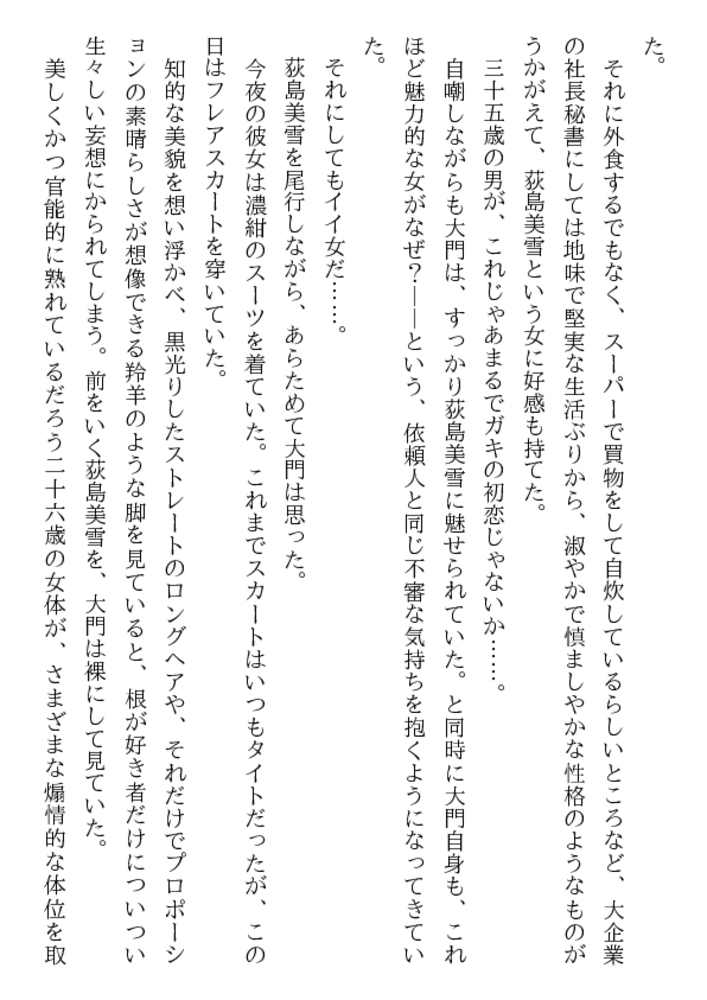 た。
　それに外食するでもなく、スーパーで買物をして自炊しているらしいところなど、大企業
の社長秘書にしては地味で堅実な生活ぶりから、淑やかで慎ましやかな性格のようなものが
うかがえて、荻島美雪という女に好感も持てた。
　三十五歳の男が、これじゃあまるでガキの初恋じゃないか……。
　自嘲しながらも大門は、すっかり荻島美雪に魅せられていた。と同時に大門自身も、これ
ほど魅力的な女がなぜ？――という、依頼人と同じ不審な気持ちを抱くようになってきてい
た。
　それにしてもイイ女だ……。
　荻島美雪を尾行しながら、あらためて大門は思った。
　今夜の彼女は濃紺のスーツを着ていた。これまでスカートはいつもタイトだったが、この
日はフレアスカートを穿いていた。
　知的な美貌を想い浮かべ、黒光りしたストレートのロングヘアや、それだけでプロポーシ
ョンの素晴らしさが想像できる羚羊のような脚を見ていると、根が好き者だけについつい
生々しい妄想にかられてしまう。前をいく荻島美雪を、大門は裸にして見ていた。
　美しくかつ官能的に熟れているだろう二十六歳の女体が、さまざまな煽情的な体位を取